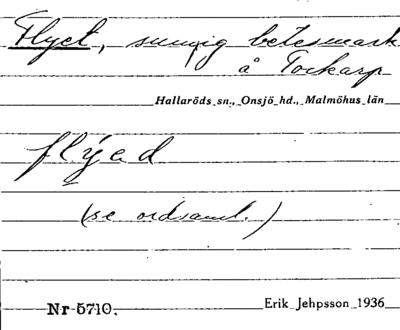 Flyet, sumpig betesmark
å Torkarp
Hallaröds sn., Onsjö hd., Malmöhus län
flýed
(se ordsaml.)
Nr 5710.
Erik Jehpsson 1936